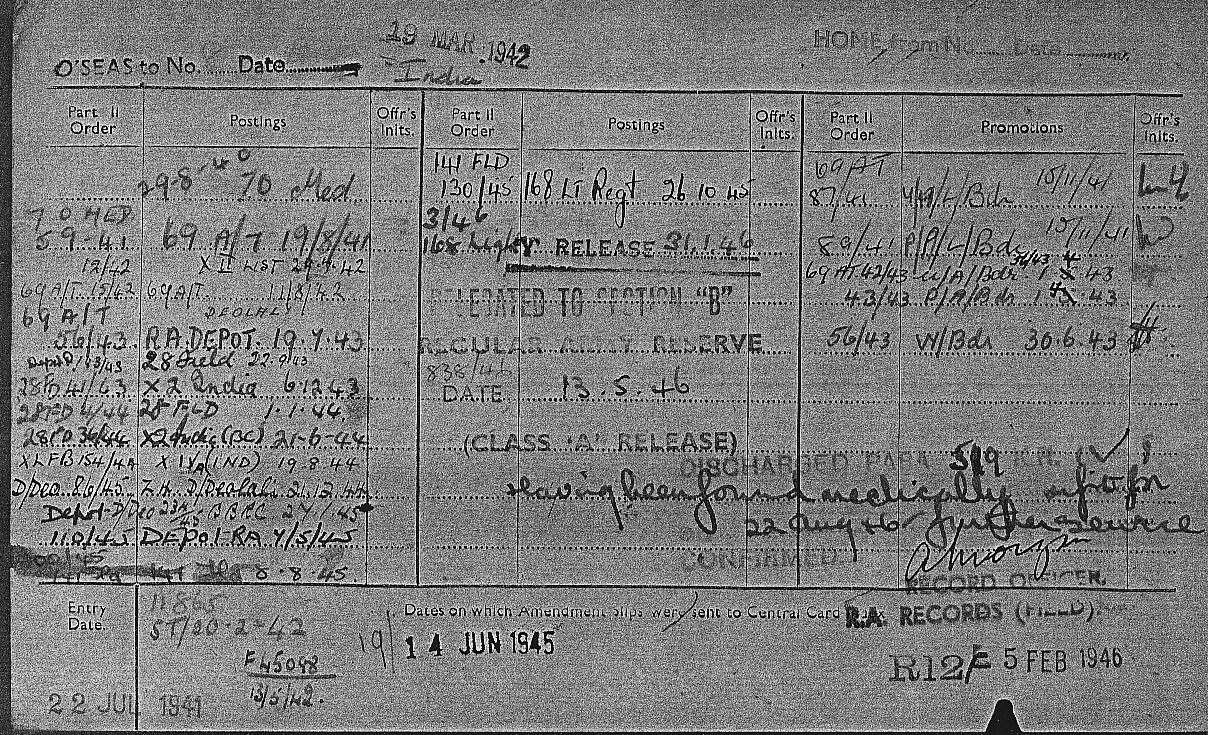 19 MAR 1942
HOME from No. Date
O'SEAS to No. Date
India
Part II Order Postings Offr's Inits. Part II Order Postings Offr's Inits. Part II Order Promotions Offr's Inits.
29-8-40 70 Med
70 MED
59-41 69 A/T 19/8/41
12/42 X II LIST 29.7.42
69 A/T 15/42 69 A/T 11/8/42
DEOLALI
69 A/T
56/43 R.A. DEPOT. 19.7.43
28 Field 22.9/43
28FD 41/43 X2 India 6.12.43
28FD 4/44 28 FLD 1.1.44
28FD 36/44 X2 India (BC) 21-6-44
X LFB 154/44 X IVA (IND) 19.8.44
D/Deo 86/45 D/Deolali 21.12.44
Depot D/Deo BBRC 27/1/45
110/45 DEPOT RA 4/5/45
8.8.45.
141 FLD
130/45 168 LT Regt 26 10 45
3/46
168 Light RELEASE 31.1.46
RELEGATED TO SECTION "B"
REGULAR ARMY RESERVE
838/46
DATE 13.5.46
(CLASS 'A' RELEASE)
69 AT
87/41 U/A/L/Bdr 15/11/41
89/41 P/A/L/Bdr 15/11/41
69 AT 42/43 U/A/Bdr 1 4 43
43/43 P/A/Bdr 1 4 43
56/43 W/Bdr 30.6.43
DISCHARGED PARA 519
Having been found medically unfit for
22 Aug 46 further service
CONFIRMED
RECORD OFFICER.
R.A. RECORDS (FIELD).
Entry Date.
11865
ST/20-2-42
F45098
13/5/42.
22 JUL 1941
Dates on which Amendment Slips were sent to Central Card
19/ 14 JUN 1945
R12E 5 FEB 1946